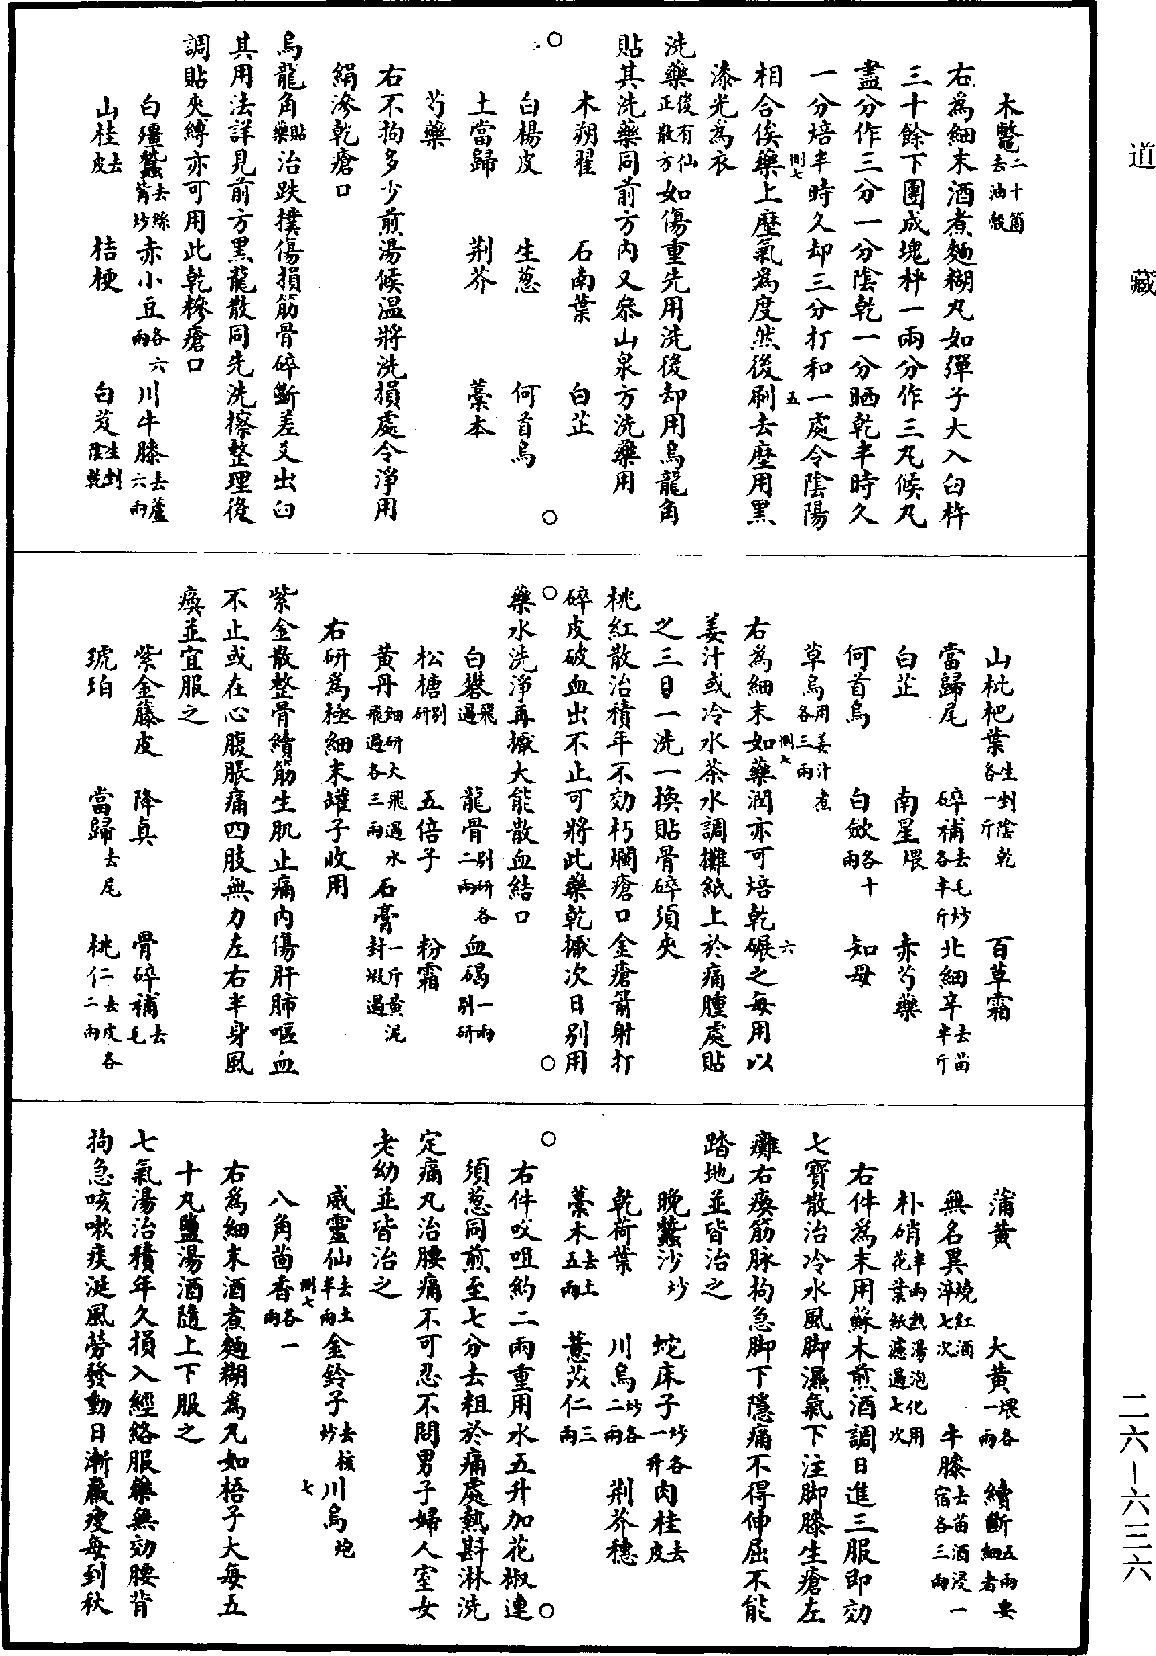 道藏
木鱉二十箇去油殼
右為細末酒煮麵糊丸如彈子大入臼杵
三十餘下團成塊秤一兩分作三丸候丸
盡分作三分一分陰乾一分晒乾半時久
一分焙半時久却三分打和一處令陰陽
相合俟藥上塵氣為度然後刷去塵用黑
漆光為衣
洗藥後有仙正散方如傷重先用洗後却用烏龍角
貼其洗藥同前方內又參山泉方洗藥用
木朔翟 石南葉 白芷
白楊皮 生葱 何首烏
土當歸 荊芥 藁本
芍藥
右不拘多少煎湯候温將洗損處令淨用
絹滲乾瘡口
烏龍角貼藥治跌撲傷損筋骨碎斷差爻出臼
其用法詳見前方黑龍散同先洗擦整理後
調貼夾縛亦可用此乾糝瘡口
白殭蠶去絲觜炒 赤小豆各六兩 川牛膝去蘆六兩
山桂去皮 桔梗 白芨生剉陰乾
山枇杷葉生剉陰乾各一斤 百草霜
當歸尾 碎補去毛炒各半斤 北細辛去苗半斤
白芷 南星煨 赤芍藥
何首烏 白斂各十兩 知母
草烏用姜汁煮各三兩
右為細末如藥潤亦可焙乾碾之每用以
姜汁或冷水茶水調攤紙上於痛腫處貼
之三日一洗一換貼骨碎須夾
桃紅散治積年不効朽爛瘡口金瘡箭射打
碎皮破血出不止可將此藥乾摵次日別用
藥水洗淨再摵大能散血結口
白礬飛過 龍骨別研各二兩 血碣一兩別研
松糖別研 五倍子 粉霜
黃丹細研大飛過水飛過各三兩 石膏一斤黃泥封煅過
右研為極細末罐子收用
紫金散整骨續筋生肌止痛內傷肝肺嘔血
不止或在心腹脹痛四肢無力左右半身風
瘓並宜服之
紫金藤皮 降真 骨碎補去毛
琥珀 當歸去尾 桃仁去皮各二兩
蒲黃 大黃煨各一兩 續斷五兩要細者
無名異燒紅酒淬七次 牛膝去苗酒浸一宿各三兩
朴硝半兩熱湯泡化用花葉紙濾過七次
右件為末用蘇木煎酒調日進三服即効
七寶散治冷水風脚濕氣下注脚膝生瘡左
癱右瘓筋脉拘急脚下隱痛不得伸屈不能
踏地並皆治之
晚蠶沙炒 蛇床子炒各一升 肉桂去皮
乾荷葉 川烏炒各二兩 荊芥穗
藁本去土五兩 薏苡仁三兩
右件㕮咀約二兩重用水五升加花椒連
須葱同煎至七分去粗於痛處熱斟淋洗
定痛丸治腰痛不可忍不問男子婦人室女
老幼並皆治之
威靈仙去土半兩 金鈴子去核炒 川烏炮
八角茴香各一兩
右為細末酒煮麵糊為丸如梧子大每五
十丸鹽湯酒隨上下服之
七氣湯治積年久損入經絡服藥無効腰背
拘急咳嗽痰涎風勞發動日漸羸瘦每到秋
二六—六三六